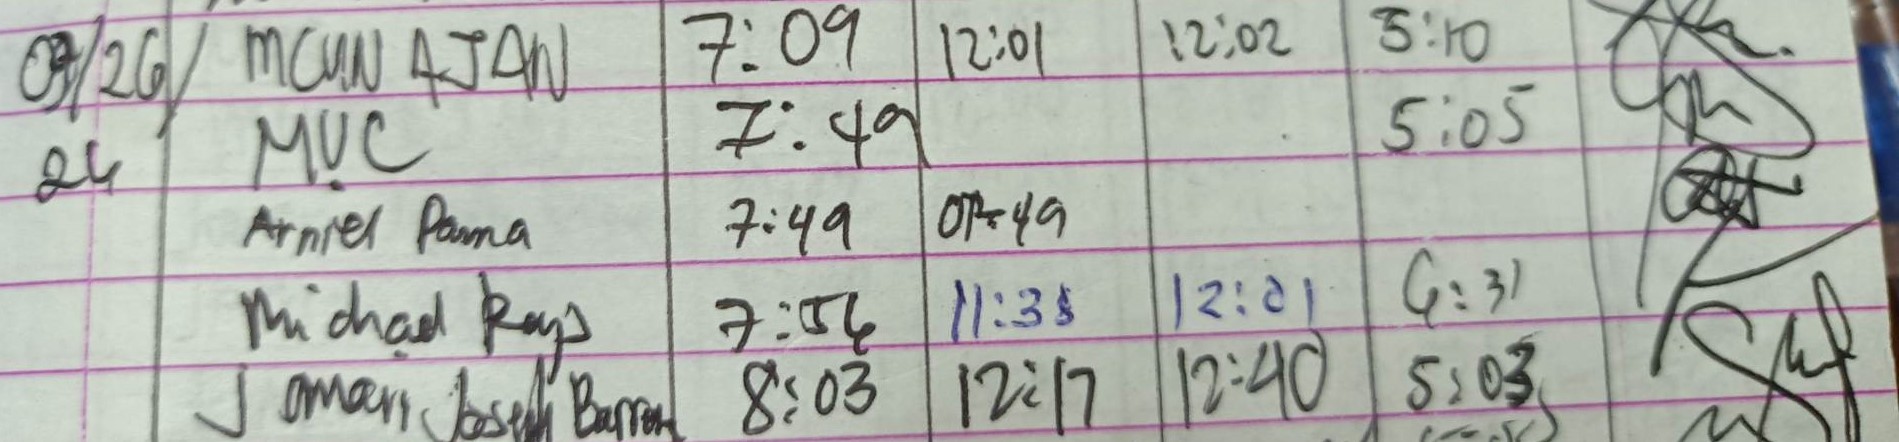 09/26/ MCUN AJAN 7:09 12:01 12:02 5:10
24 MUC 7:49 5:05
Arniel Pama 7:49 07:49
Michael Rays 7:56 11:38 12:01 6:31
Jomari Joseph Barron 8:03 12:17 12:40 5:03